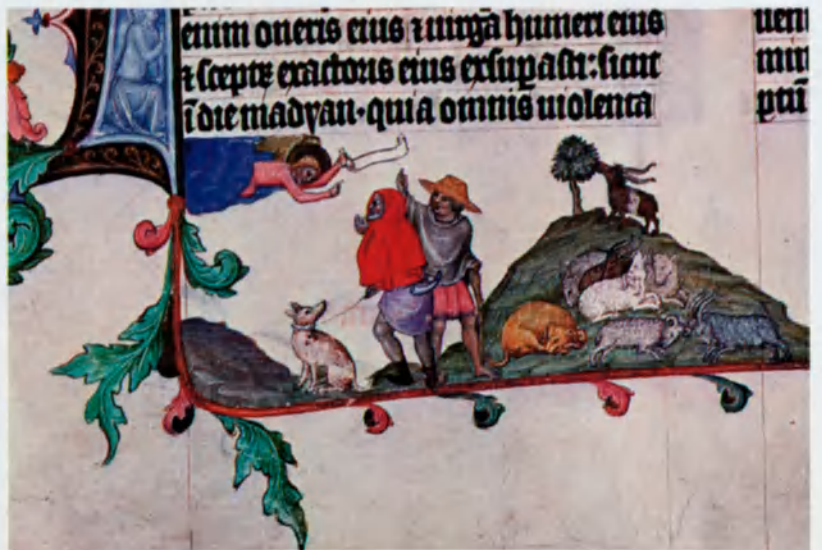 enim oneris eius ⁊ uirgã humeri eius
⁊ sceptꝝ exactoris eius exsuꝑasti: sicut
ĩ die madyan· quia omnis uiolenta